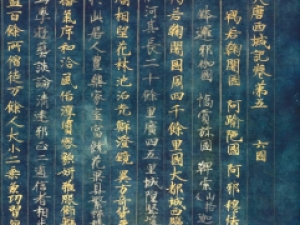 大唐西域記卷第五　六國
羯若鞠闍國　阿踰陁國　阿耶穆佉
鉢邏耶伽國　憍賞弥國　鞞索山格迦
羯若鞠闍國周四千餘里國大都城西臨
河其長二十餘里廣四五里城隍堅
閣相望花林池沼光鮮澄鏡異方奇貨
山居人豐樂家室富饒花菓具繁稼
播氣序和洽風俗淳質容貌妍雅服飾
學遊藝談論清遠邪正二道信者相半
藍百餘所僧徒万餘人大小二乘兼功習